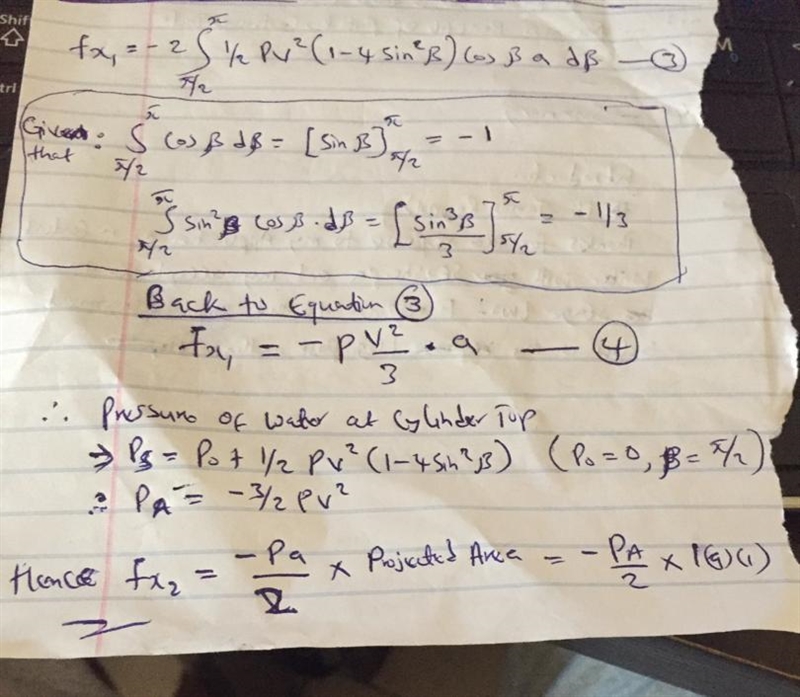 fx₁ = - 2 ∫π/2^π 1/2 PV² (1 - 4 sin²β) Cos β a dβ — ③
Given that : ∫π/2^π Cos β dβ = [sin β]π/2^π = - 1
∫π/2^π sin²β Cos β · dβ = [sin³β/3]π/2^π = - 1/3
Back to Equation ③
Fx₁ = - P V²/3 · a — ④
∴ Pressure of water at Cylinder Top
⇒ Ps = Po + 1/2 PV² (1 - 4 sin²β) (Po = 0, β = π/2)
∴ PA = - 3/2 PV²
Hence fx₂ = - Pa/2 × Projected Area = - PA/2 × 1(a)(1)
Shift
trl
M